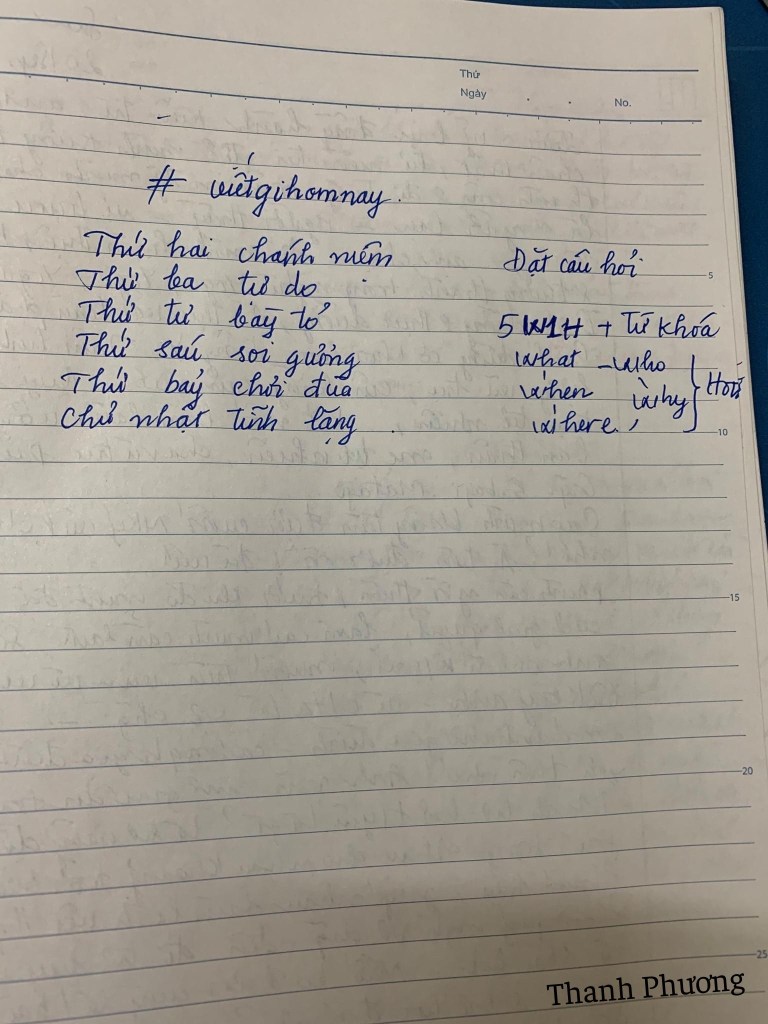 Thứ
Ngày
No.
# viết gì homnay.
Thứ hai chánh niệm
Thứ ba tự do
Thứ tư bày tỏ
Thứ sáu soi gương
Thứ bảy chơi đùa
Chủ nhật tĩnh lặng.
Đặt câu hỏi
5W1H + Từ khóa
what - who
when why
where,
How
5
10
15
20
25
Thanh Phương